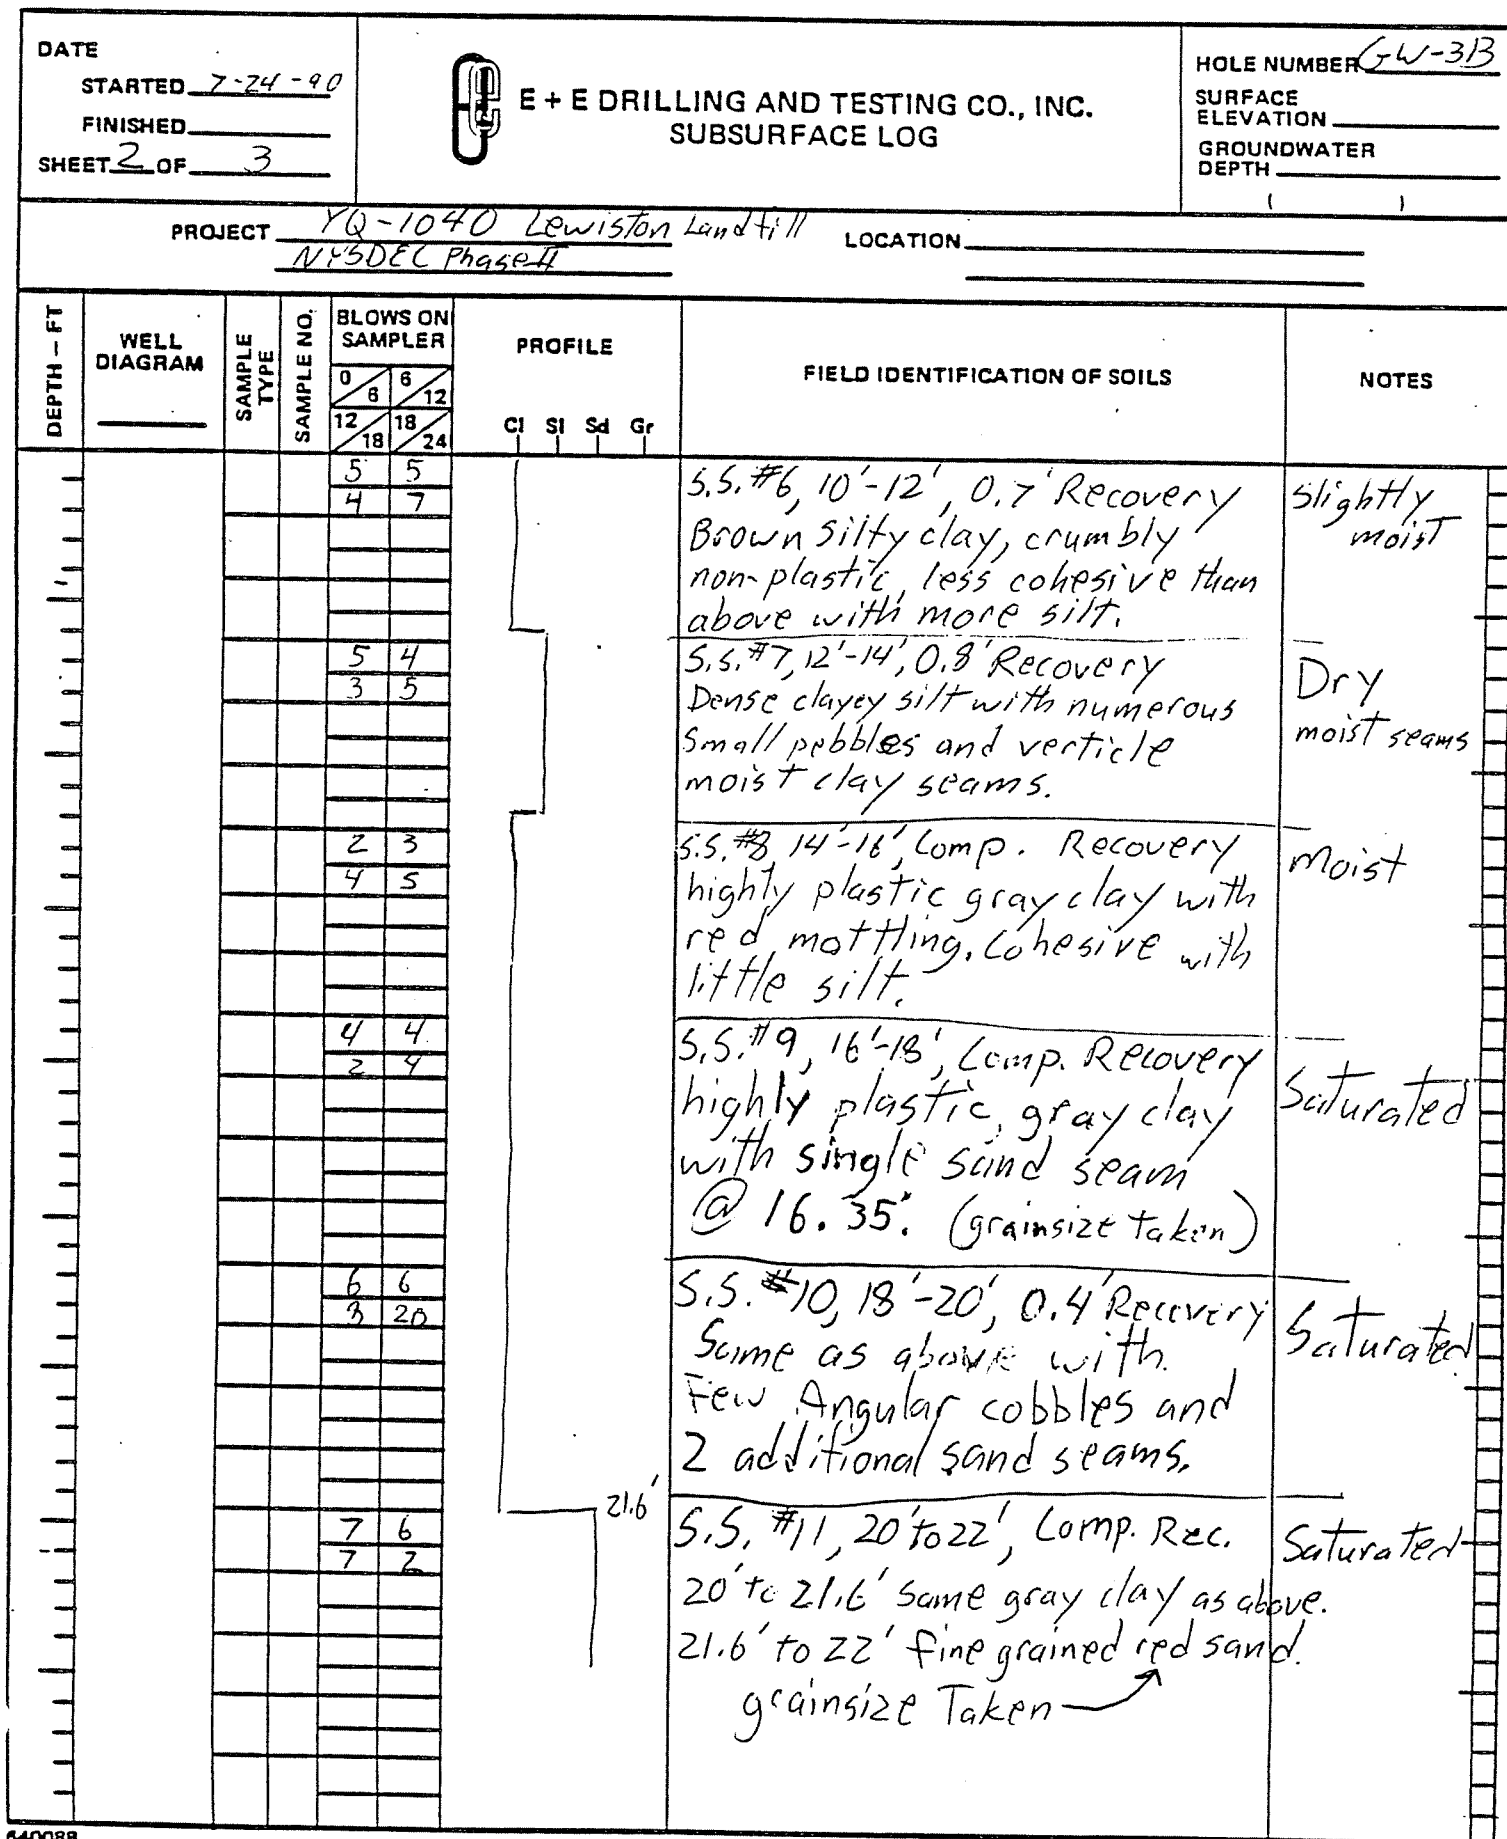 DATE
STARTED 7-24-90
FINISHED
SHEET 2 OF 3
E + E DRILLING AND TESTING CO., INC.
SUBSURFACE LOG
HOLE NUMBER GW-3B
SURFACE
ELEVATION
GROUNDWATER
DEPTH
( )
PROJECT YQ-1040 Lewiston Landfill
NYSDEC Phase II
LOCATION
DEPTH – FT
WELL
DIAGRAM
SAMPLE
TYPE
SAMPLE NO.
BLOWS ON
SAMPLER
0/6 6/12
12/18 18/24
PROFILE
Cl Sl Sd Gr
FIELD IDENTIFICATION OF SOILS
NOTES
5 5
4 7
S.S. #6, 10'-12', 0.7' Recovery
Brown silty clay, crumbly
non-plastic, less cohesive than
above with more silt.
Slightly
moist
5 4
3 5
S.S. #7, 12'-14', 0.8' Recovery
Dense clayey silt with numerous
small pebbles and verticle
moist clay seams.
Dry
moist seams
2 3
4 5
S.S. #8, 14'-16', Comp. Recovery
highly plastic gray clay with
red mottling. Cohesive with
little silt.
Moist
4 4
2 4
S.S. #9, 16'-18', Comp. Recovery
highly plastic, gray clay
with single sand seam
@ 16.35'. (grainsize taken)
Saturated
6 6
3 20
S.S. #10, 18'-20', 0.4' Recovery
Same as above with
Few Angular cobbles and
2 additional sand seams.
Saturated
21.6'
7 6
7 2
S.S. #11, 20' to 22', Comp. Rec.
20' to 21.6' same gray clay as above.
21.6' to 22' fine grained red sand.
grainsize Taken
Saturated
640088